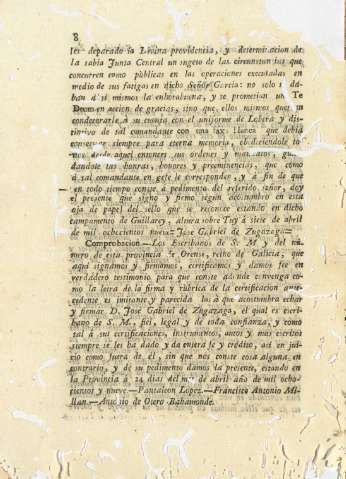 8
les deparado la Divina providencia, y determinacion de
la sabia Junta Central un sugeto de las circunstancias que
concurren como públicas en las operaciones executadas en
medio de sus fatigas en dicho Señor Garcia: no solo se da-
ban á sí mismos la enhorabuena, y se prometian un Te
Deum en accion de gracias, sino que ellos mismos
condecorarle á su costa con el uniforme de Lobera y dis-
tintivo de tal comandante con una faxa blanca que debia
conservar siempre para eterna memoria, obedeciendole to-
nos desde aquel entonces sus ordenes y mandatos, guar-
dandole las honras, honores y preeminencias, que como
á tal comandante en gefe le corresponden, y á fin de que
en todo tiempo conste á pedimento del referido señor, doy
el presente que signo y firmo segun acostumbro en esta
oja de papel del sello que se reconoce estando en dicho
campamento de Guillarey, afuera sobre Tuy á siete de abril
de mil ochocientos nueve= Jose Gabriel de Zugazaga=
Comprobacion.—Los Escribanos de S. M y del nú-
mero de esta provincia de Orense, reino de Galicia, que
aqui signamos y firmamos, certificamos y damos fee en
verdadero testimonio para que conste adonde convenga co-
mo la letra de la firma y rúbrica de la certificacion ante-
cedente es imitante y parecida los á que acostumbra echar
y firmar D. Jose Gabriel de Zugazaga, el qual es escri-
bano de S. M., fiel, legal y de toda confianza, y como
tal á sus certificaciones, instrumentos, autos y mas escritos
siempre se les ha dado y da entera fe y crédito, asi en jui-
cio como fuera de él, sin que nos conste cosa alguna en
contrario, y de su pedimento damos la presente, estando en
la Provincia á 24 dias del mes de abril año de mil ocho-
cientos y nueve—Pantaleon Lopez.—Francisco Antonio Mi-
llan.—Antonio de Otero Bahamonde.